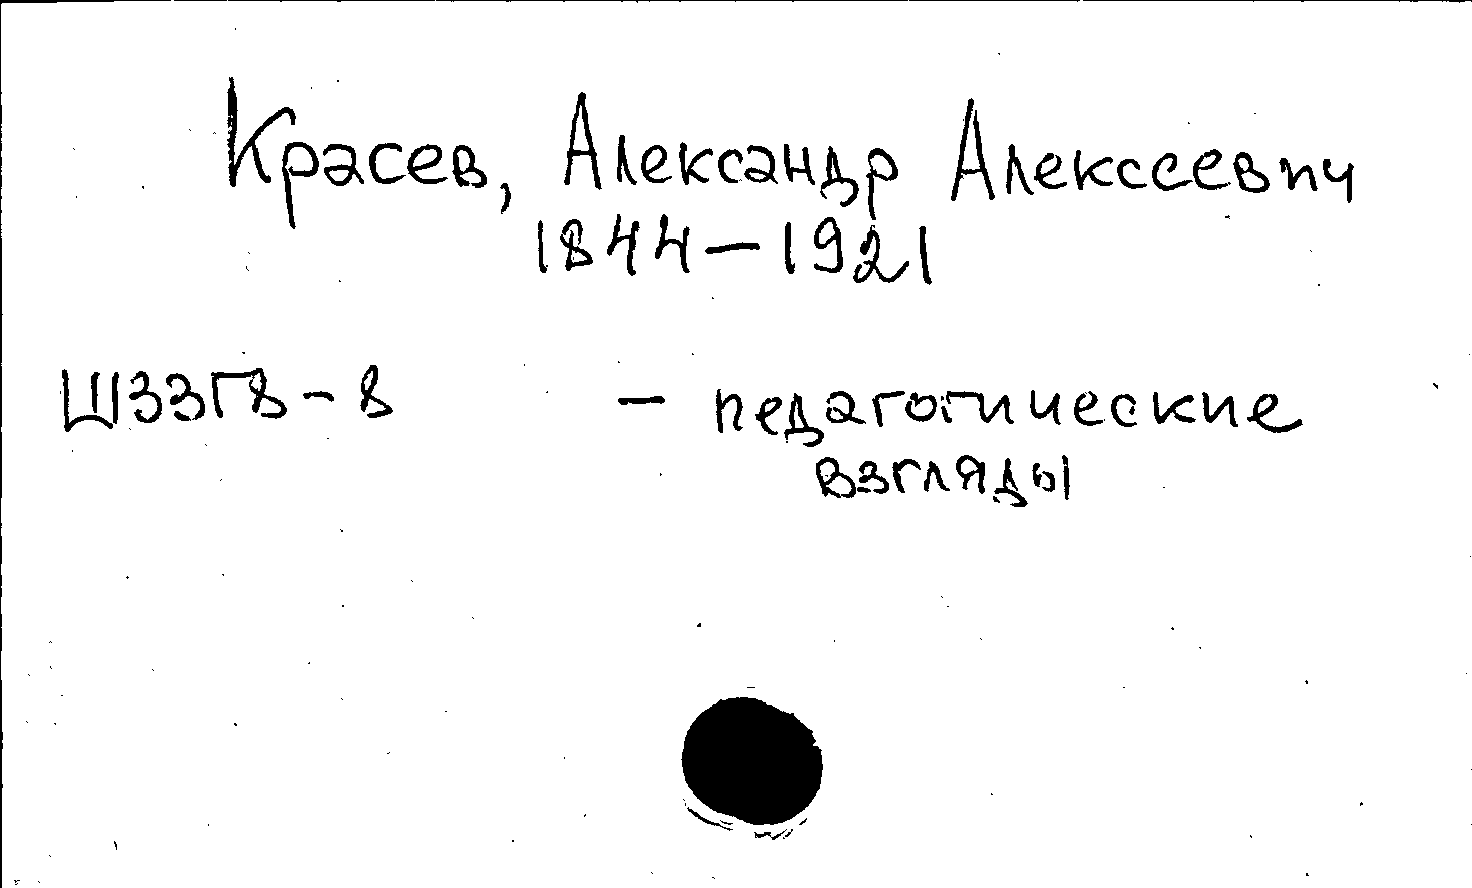 Красев, Александр Алексеевич
1844–1921
Ш33Г8-8 – педагогические
взгляды